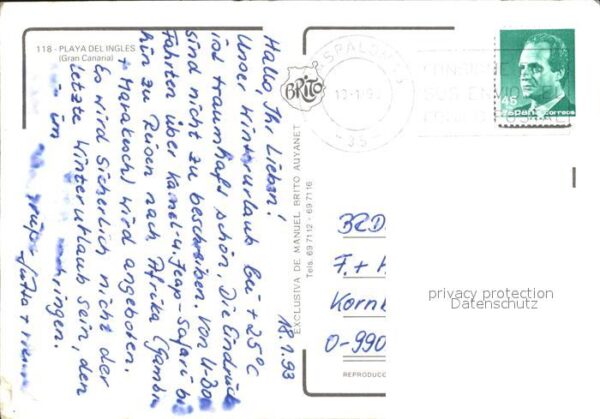 118 - PLAYA DEL INGLES
(Gran Canaria)
18.1.93
Hallo, Ihr Lieben!
Unser Winterurlaub bei +25°C
ist traumhaft schön. Die Eindrück
sind nicht zu beschreiben. Von U-Boo
Fahrten über Kamel- u. Jeap-Safari bi
hin zu Reisen nach Afrika (Gambi
+ Marakesch) wird angeboten.
Es wird sicherlich nicht der
letzte Winterurlaub sein, den
wir im
BRITO
EXCLUSIVA DE MANUEL BRITO AUYANET
Tels. 69 7112 - 69 7116
45
España correos
BRD
F. + H
Kornb
O-990
REPRODUC
privacy protection
Datenschutz